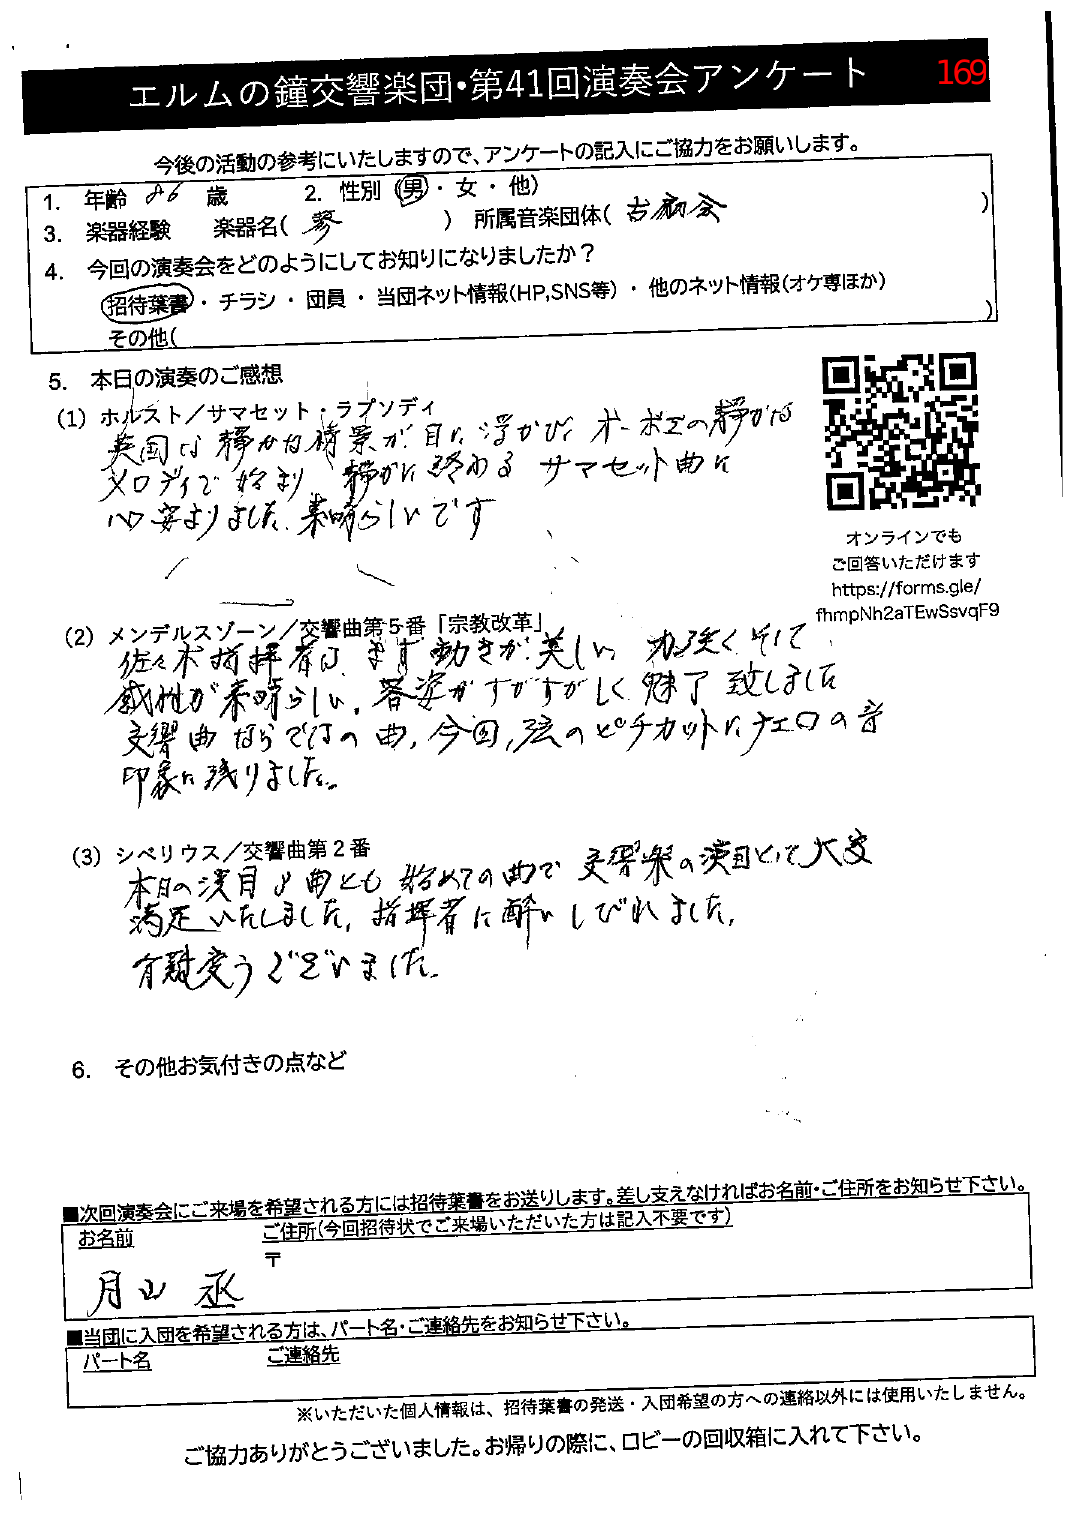 エルムの鐘交響楽団・第41回演奏会アンケート 169
今後の活動の参考にいたしますので、アンケートの記入にご協力をお願いします。
1. 年齢 86 歳 2. 性別(男・女・他)
3. 楽器経験 楽器名( 琴 ) 所属音楽団体( )
4. 今回の演奏会をどのようにしてお知りになりましたか？
招待葉書・チラシ・団員・当団ネット情報(HP,SNS等)・他のネット情報(オケ専ほか)
その他( )
5. 本日の演奏のご感想
(1) ホルスト／サマセット・ラプソディ
英国は静かな情景が目に浮かび オーボエの静かな
メロディで始まり 静かに終わる サマセット曲に
心安まりました、素晴らしいです
オンラインでも
ご回答いただけます
https://forms.gle/
fhmpNh2aTEwSsvqF9
(2) メンデルスゾーン／交響曲第5番「宗教改革」
佐々木指揮者は まず動きが美しい 力強くそして
感性が素晴らしい、容姿がすがすがしく魅了致しました
交響曲ならではの曲、今回、弦のピチカットにチェロの音
印象に残りました。
(3) シベリウス／交響曲第２番
本日の演目3曲とも 始めての曲で 交響楽の演目として大変
満足いたしました、指揮者に酔いしびれました、
有難うございました。
6. その他お気付きの点など
■次回演奏会にご来場を希望される方には招待葉書をお送りします。差し支えなければお名前・ご住所をお知らせ下さい。
お名前 ご住所(今回招待状でご来場いただいた方は記入不要です)
〒
月山 丞
■当団に入団を希望される方は、パート名・ご連絡先をお知らせ下さい。
パート名 ご連絡先
※いただいた個人情報は、招待葉書の発送・入団希望の方への連絡以外には使用いたしません。
ご協力ありがとうございました。お帰りの際に、ロビーの回収箱に入れて下さい。